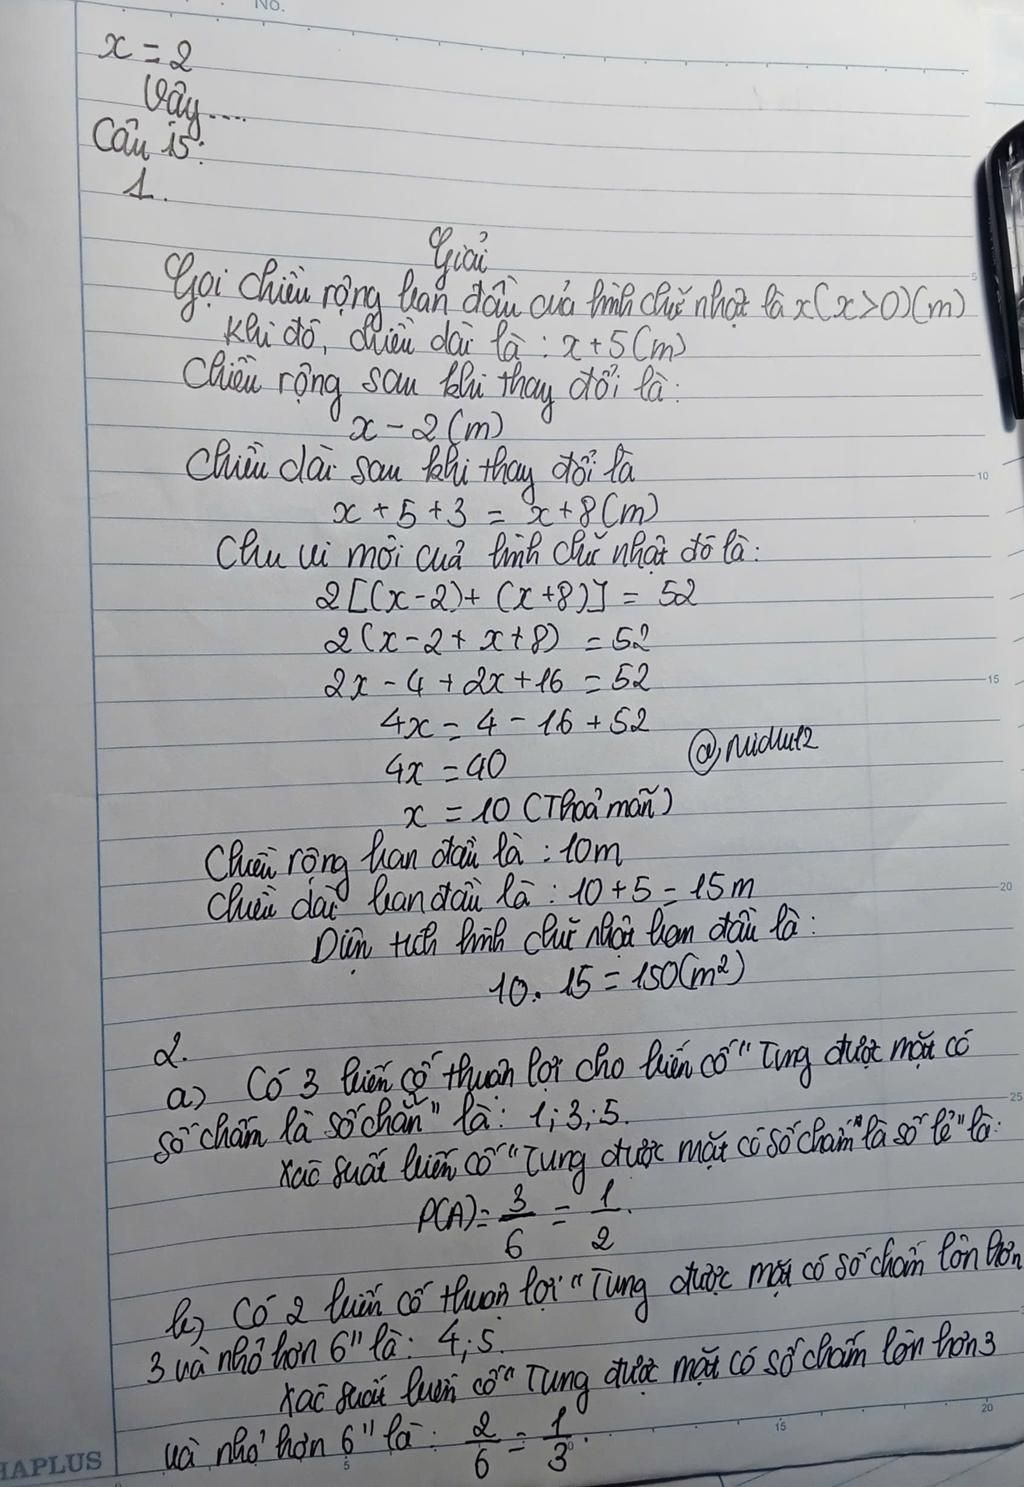 No.
x = 2
Vậy....
Câu 15:
1.
Giải
Gọi chiều rộng ban đầu của hình chữ nhật là x (x>0) (m)
Khi đó, chiều dài là : x + 5 (m)
Chiều rộng sau khi thay đổi là:
x - 2 (m)
Chiều dài sau khi thay đổi là
x + 5 + 3 = x + 8 (m)
Chu vi mới của hình chữ nhật đó là:
2 [(x-2) + (x+8)] = 52
2 (x - 2 + x + 8) = 52
2x - 4 + 2x + 16 = 52
4x = 4 - 16 + 52
4x = 40
x = 10 (Thoả mãn)
Chiều rộng ban đầu là : 10m
Chiều dài ban đầu là : 10 + 5 = 15m
Diện tích hình chữ nhật ban đầu là :
10 . 15 = 150 (m²)
2.
a) Có 3 biến cố thuận lợi cho biến cố "Tung được mặt có
số chấm là số chẵn" là: 1; 3; 5.
Xác suất biến cố "Tung được mặt có số chấm là số lẻ" là:
P(A) = 3/6 = 1/2.
b) Có 2 biến cố thuận lợi "Tung được mặt có số chấm lớn hơn
3 và nhỏ hơn 6" là: 4; 5.
Xác suất biến cố "Tung được mặt có số chấm lớn hơn 3
và nhỏ hơn 6" là : 2/6 = 1/3.
HAPLUS
5
10
15
20
25
5
15
20